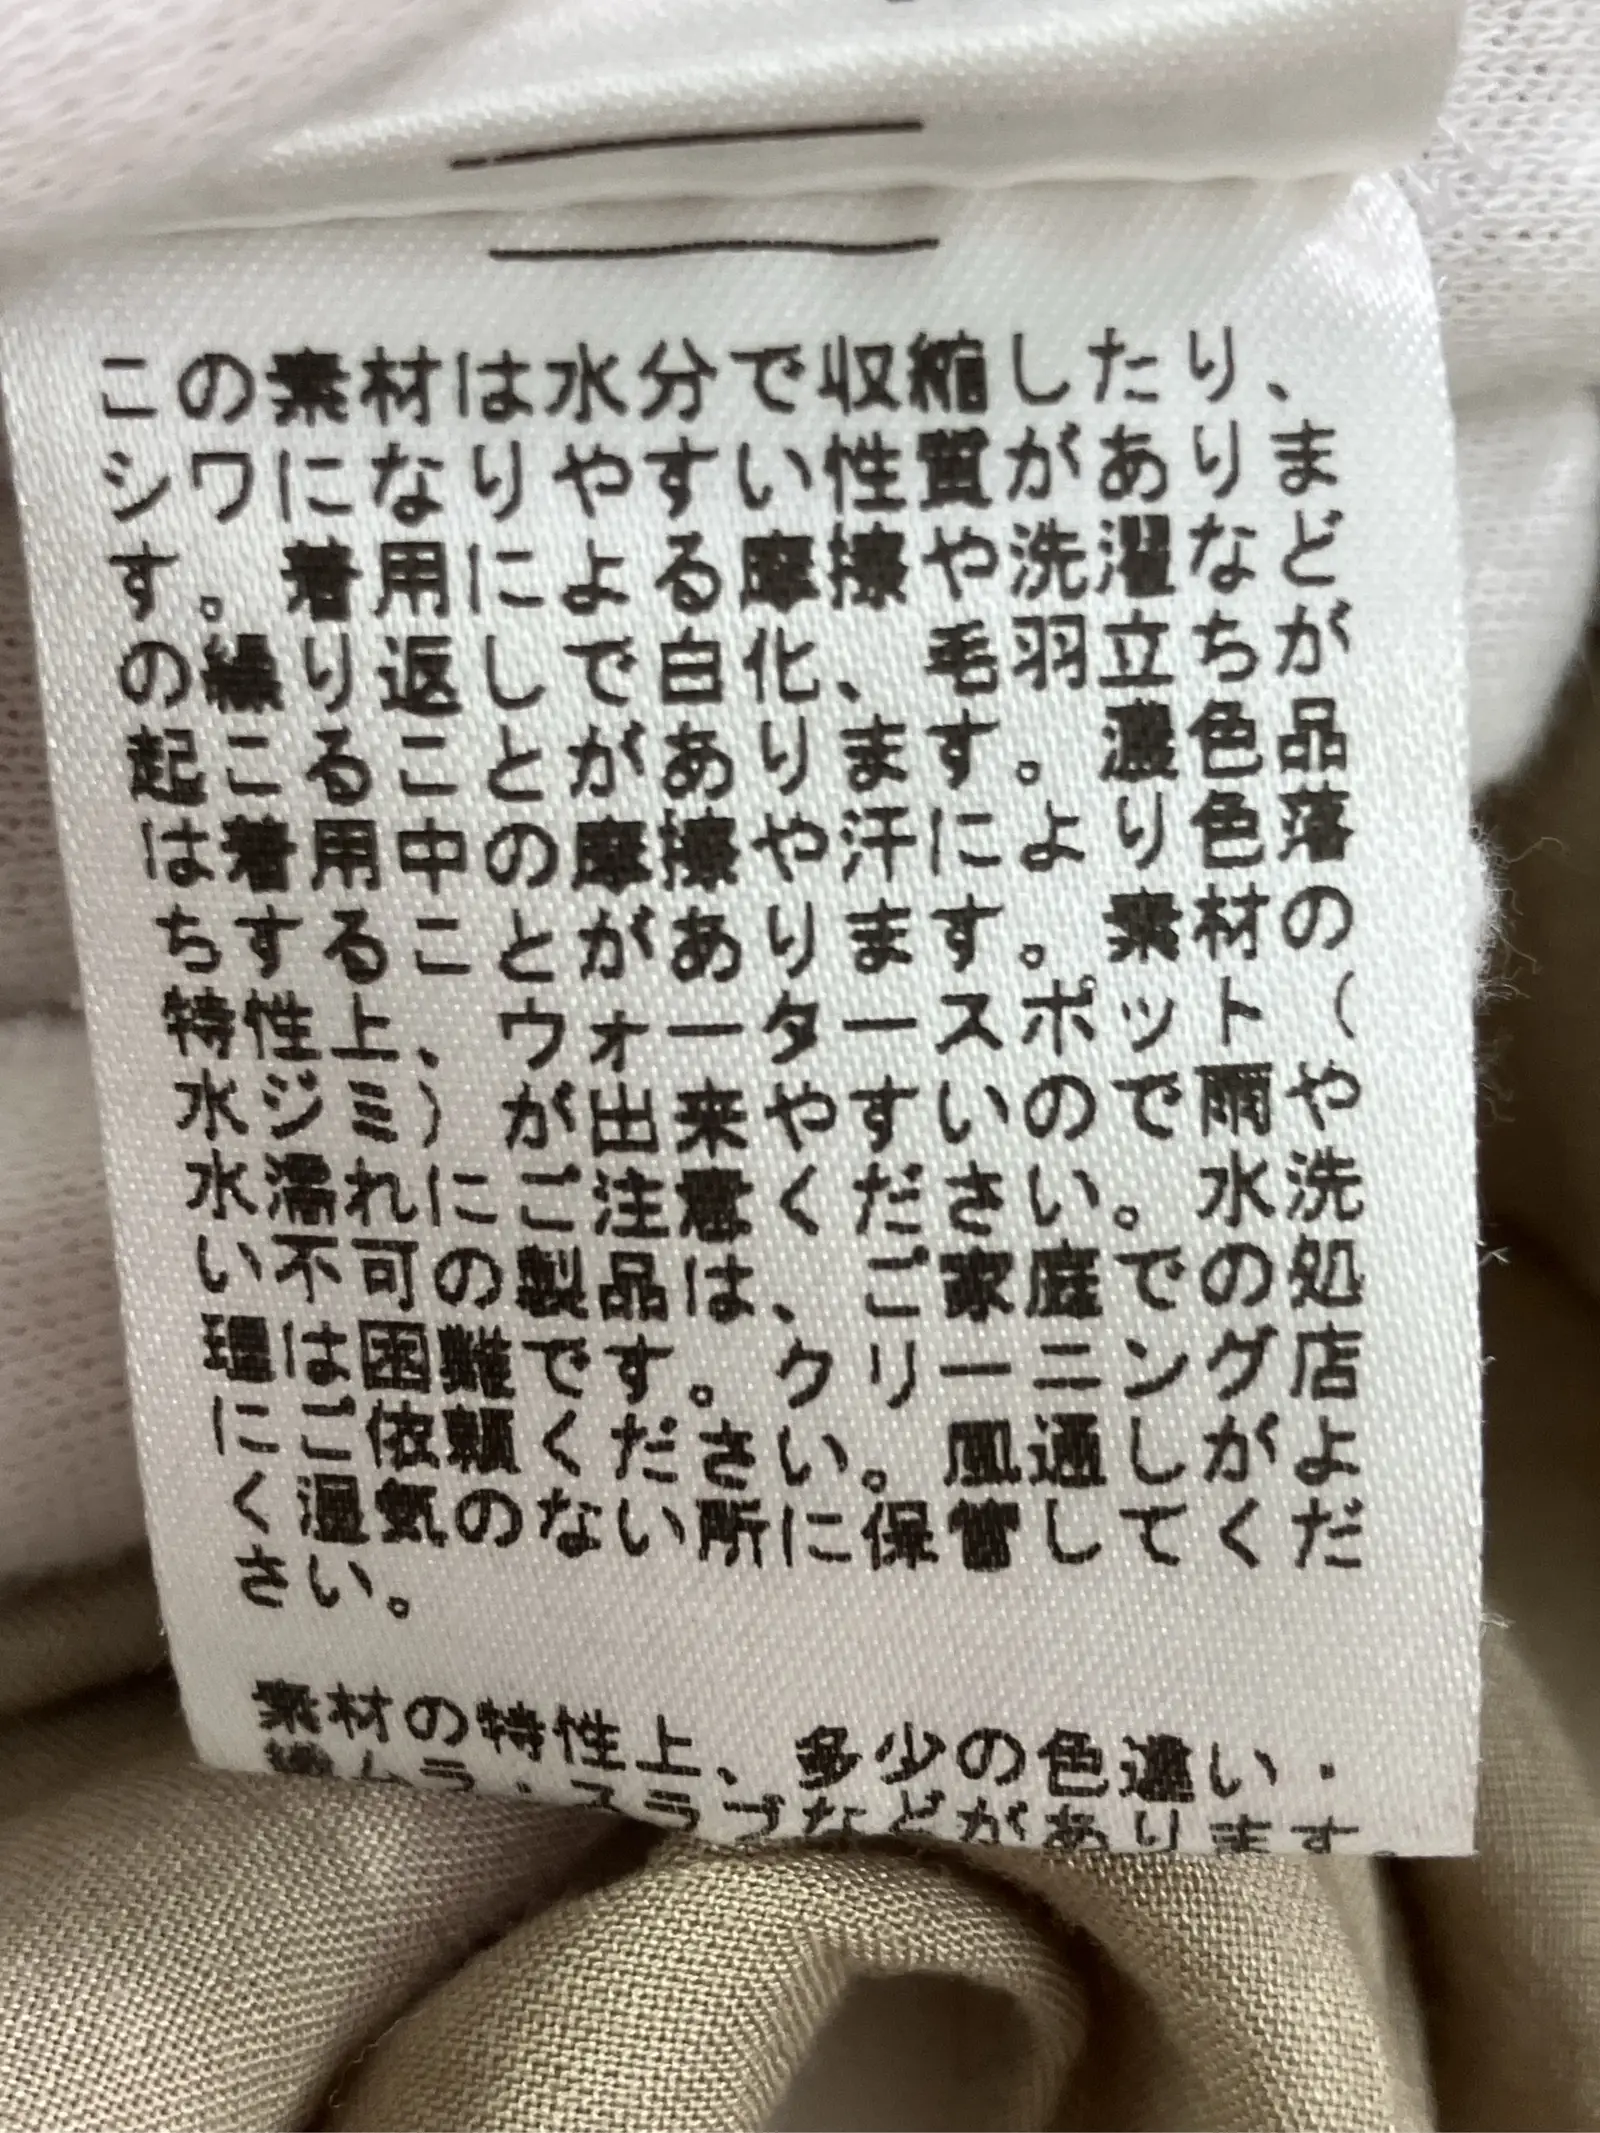 この素材は水分で収縮したり、
シワになりやすい性質がありま
す。着用による摩擦や洗濯など
の繰り返しで白化、毛羽立ちが
起こることがあります。濃色品
は着用中の摩擦や汗により色落
ちすることがあります。素材の
特性上、ウォータースポット（
水ジミ）が出来やすいので雨や
水濡れにご注意ください。水洗
い不可の製品は、ご家庭での処
理は困難です。クリーニング店
にご依頼ください。風通しがよ
く湿気のない所に保管してくだ
さい。
素材の特性上、多少の色違い・
ムラ・スラブなどがあります